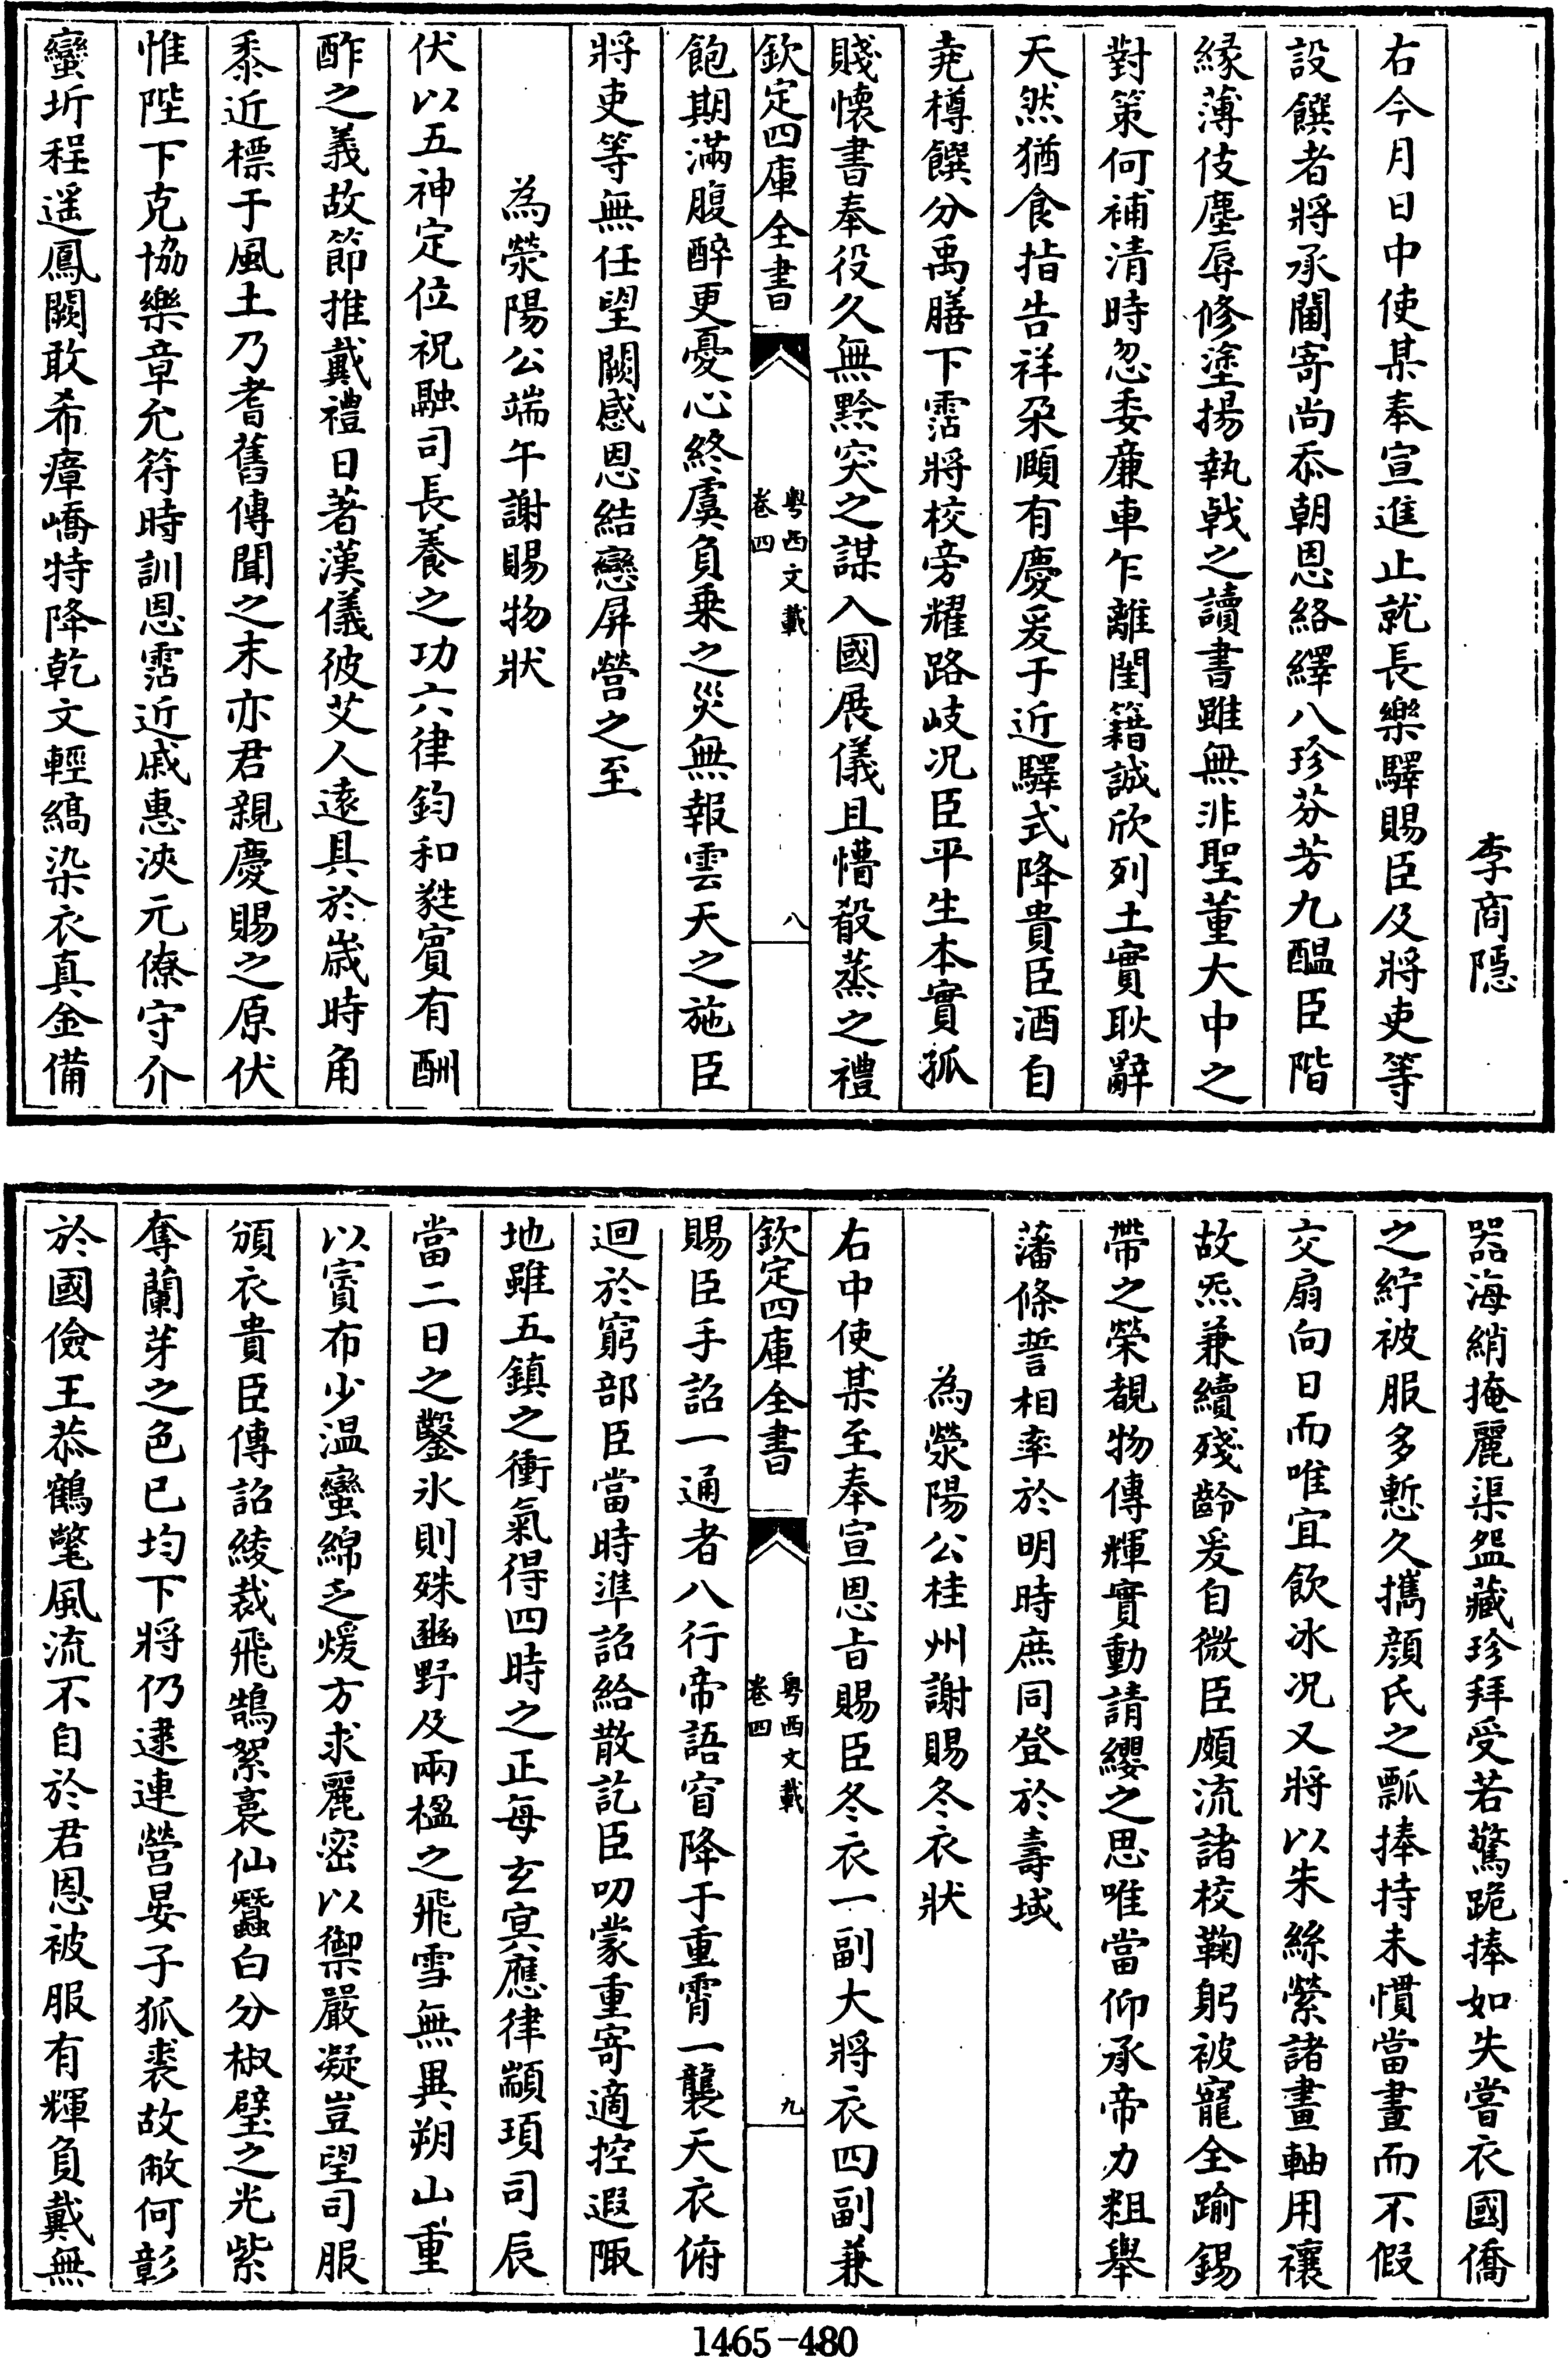 李商隱
右今月日中使某奉宣進止就長樂驛賜臣及將吏等
設饌者將承閫寄尚忝朝恩絡繹八珍芬芳九醖臣階
緣薄伎塵辱修塗揚執㦸之讀書雖無非聖董大中之
對策何補清時忽委廉車乍離閨籍誠欣列土實耿辭
天然猶食指告祥朶頤有慶爰于近驛式降貴臣酒自
堯樽饌分禹膳下霑將校旁耀路岐况臣平生本實孤
賤懷書奉役久無黔突之謀入國展儀且懵殽蒸之禮
欽定四庫全書 粤西文載 卷四 八
飽期滿腹醉更憂心終虞負乗之災無報雲天之施臣
將吏等無任望闕感恩結戀屏營之至
為滎陽公端午謝賜物狀
伏以五神定位祝融司長養之功六律鈞和蕤賓有酬
酢之義故節推戴禮日著漢儀彼艾人逺具於嵗時角
黍近標于風土乃耆舊傳聞之末亦君親慶賜之原伏
惟陛下克協樂章允符時訓恩霑近戚惠浹元僚守介
蠻圻程遥鳳闕敢希瘴嶠特降乾文輕縞染衣真金備
器海綃掩麗渠盌藏珍拜受若驚跪捧如失嘗衣國僑
之紵被服多慙久攜顔氏之瓢捧持未慣當晝而不假
交扇向日而唯宜飲冰况又將以朱絲縈諸畫軸用禳
故炁兼續殘齡爰自微臣頗流諸校鞠躬被寵全踰錫
帶之榮覩物傳輝實動請纓之思唯當仰承帝力粗舉
藩條誓相率於明時庶同登於壽域
為滎陽公桂州謝賜冬衣狀
右中使某至奉宣恩㫖賜臣冬衣一副大將衣四副兼
欽定四庫全書 粤西文載 卷四 九
賜臣手詔一通者八行帝語窅降于重霄一襲天衣俯
迴於窮部臣當時準詔給散訖臣叨蒙重寄適控遐陬
地雖五鎮之衝氣得四時之正每玄㝠應律顓頊司辰
當二日之鑿氷則殊豳野及兩楹之飛雪無異朔山重
以賓布少温蠻綿乏煖方求麗密以禦嚴凝豈望司服
頒衣貴臣傳詔綾裁飛鵠絮裛仙蠶白分椒壁之光紫
奪蘭芽之色已均下將仍逮連營晏子狐裘故敝何彰
於國儉王恭鶴氅風流不自於君恩被服有輝負戴無
1465-480